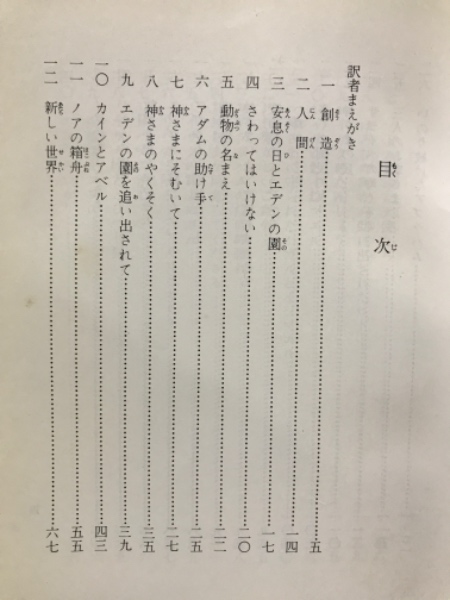 目次
訳者まえがき
一 創造……五
二 人間……一四
三 安息の日とエデンの園……一七
四 さわってはいけない……二〇
五 動物の名まえ……二二
六 アダムの助け手……二五
七 神さまにそむいて……二七
八 神さまのやくそく……三五
九 エデンの園を追い出されて……三九
一〇 カインとアベル……四三
一一 ノアの箱舟……五五
一二 新しい世界……六七